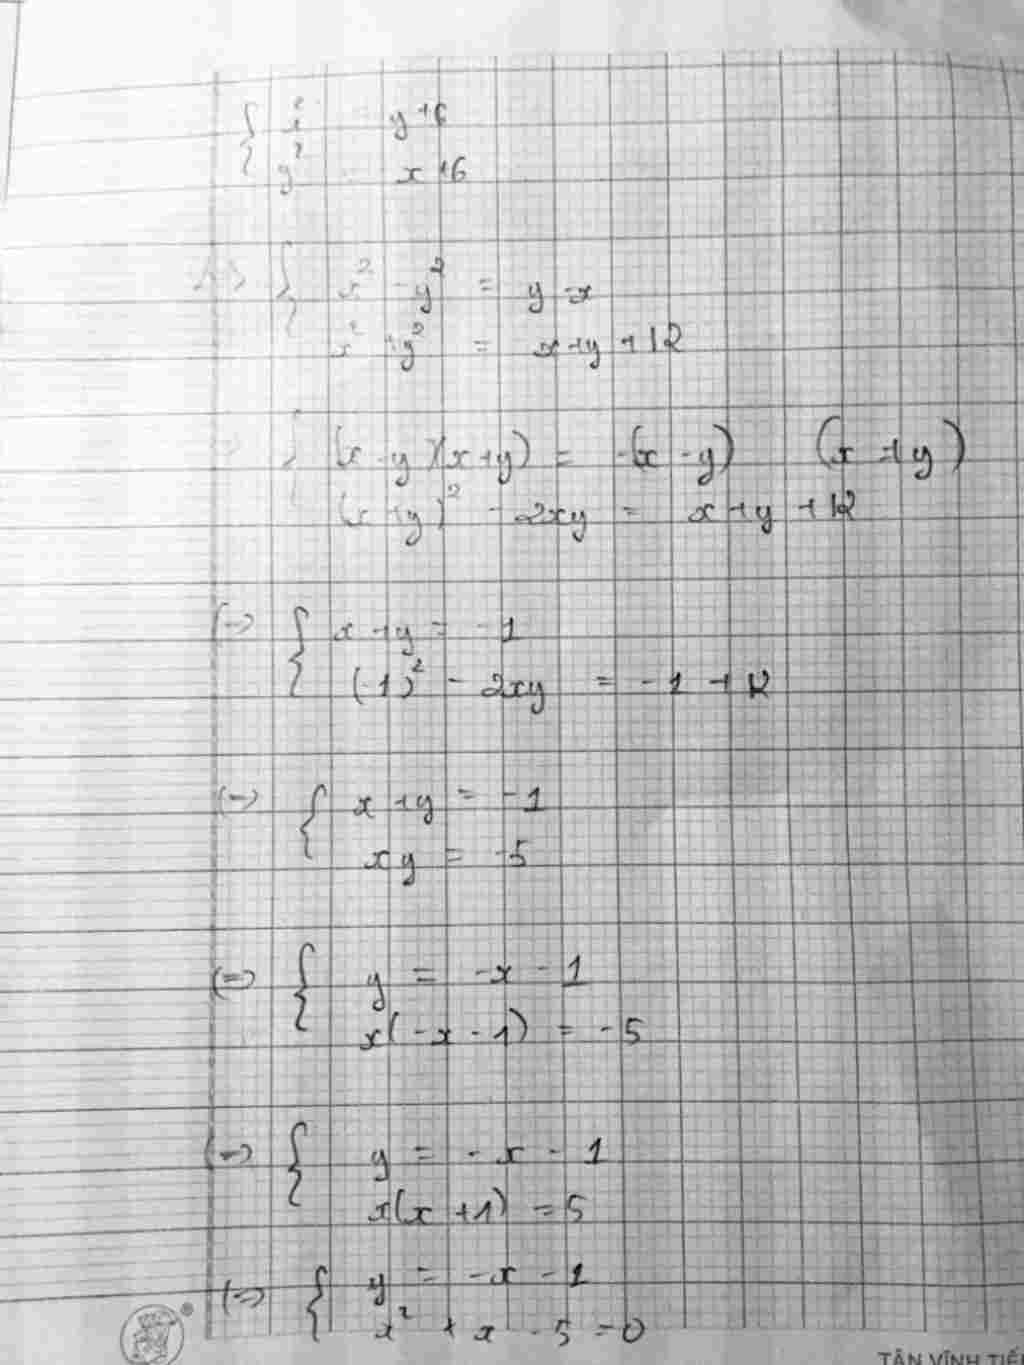 { x² = y+6
y² = x+6
<=> { x² - y² = y - x
x² + y² = x+y+12
{ (x-y)(x+y) = -(x-y) (x≠y)
(x+y)² - 2xy = x+y+12
(=) { x+y = -1
(-1)² - 2xy = -1+12
(=) { x+y = -1
xy = -5
(=) { y = -x-1
x(-x-1) = -5
(=) { y = -x-1
x(x+1) = 5
(=) { y = -x-1
x² + x - 5 = 0
®
TÂN VĨNH TIẾ